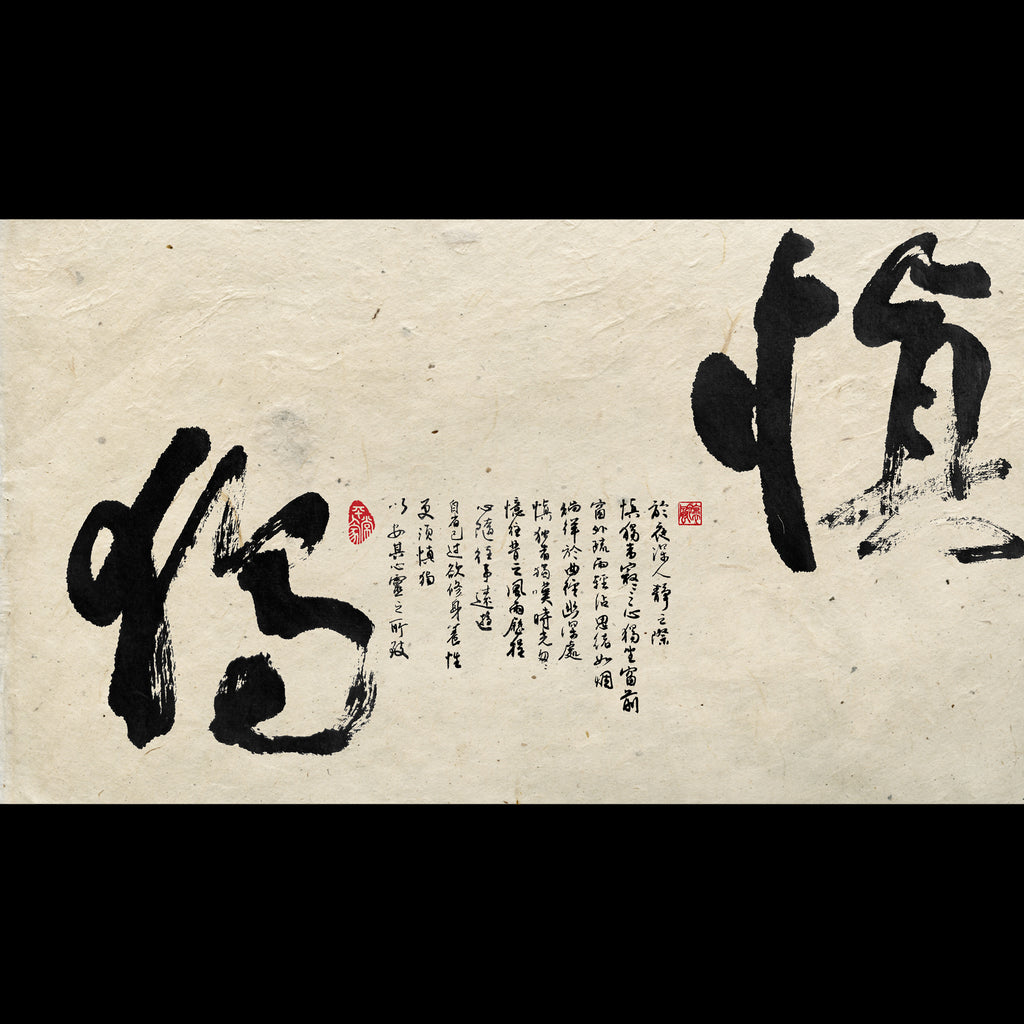 慎
於夜深人靜之際
慎獨者寂之心獨坐窗前
窗外疏雨輕沾思緒如烟
徜徉於曲徑幽深處
慎獨者獨嘆時光
憶往昔之風雨歷程
心隨往事遠遊
自省己过欲修身養性
更須慎獨
以安其心靈之所
獨